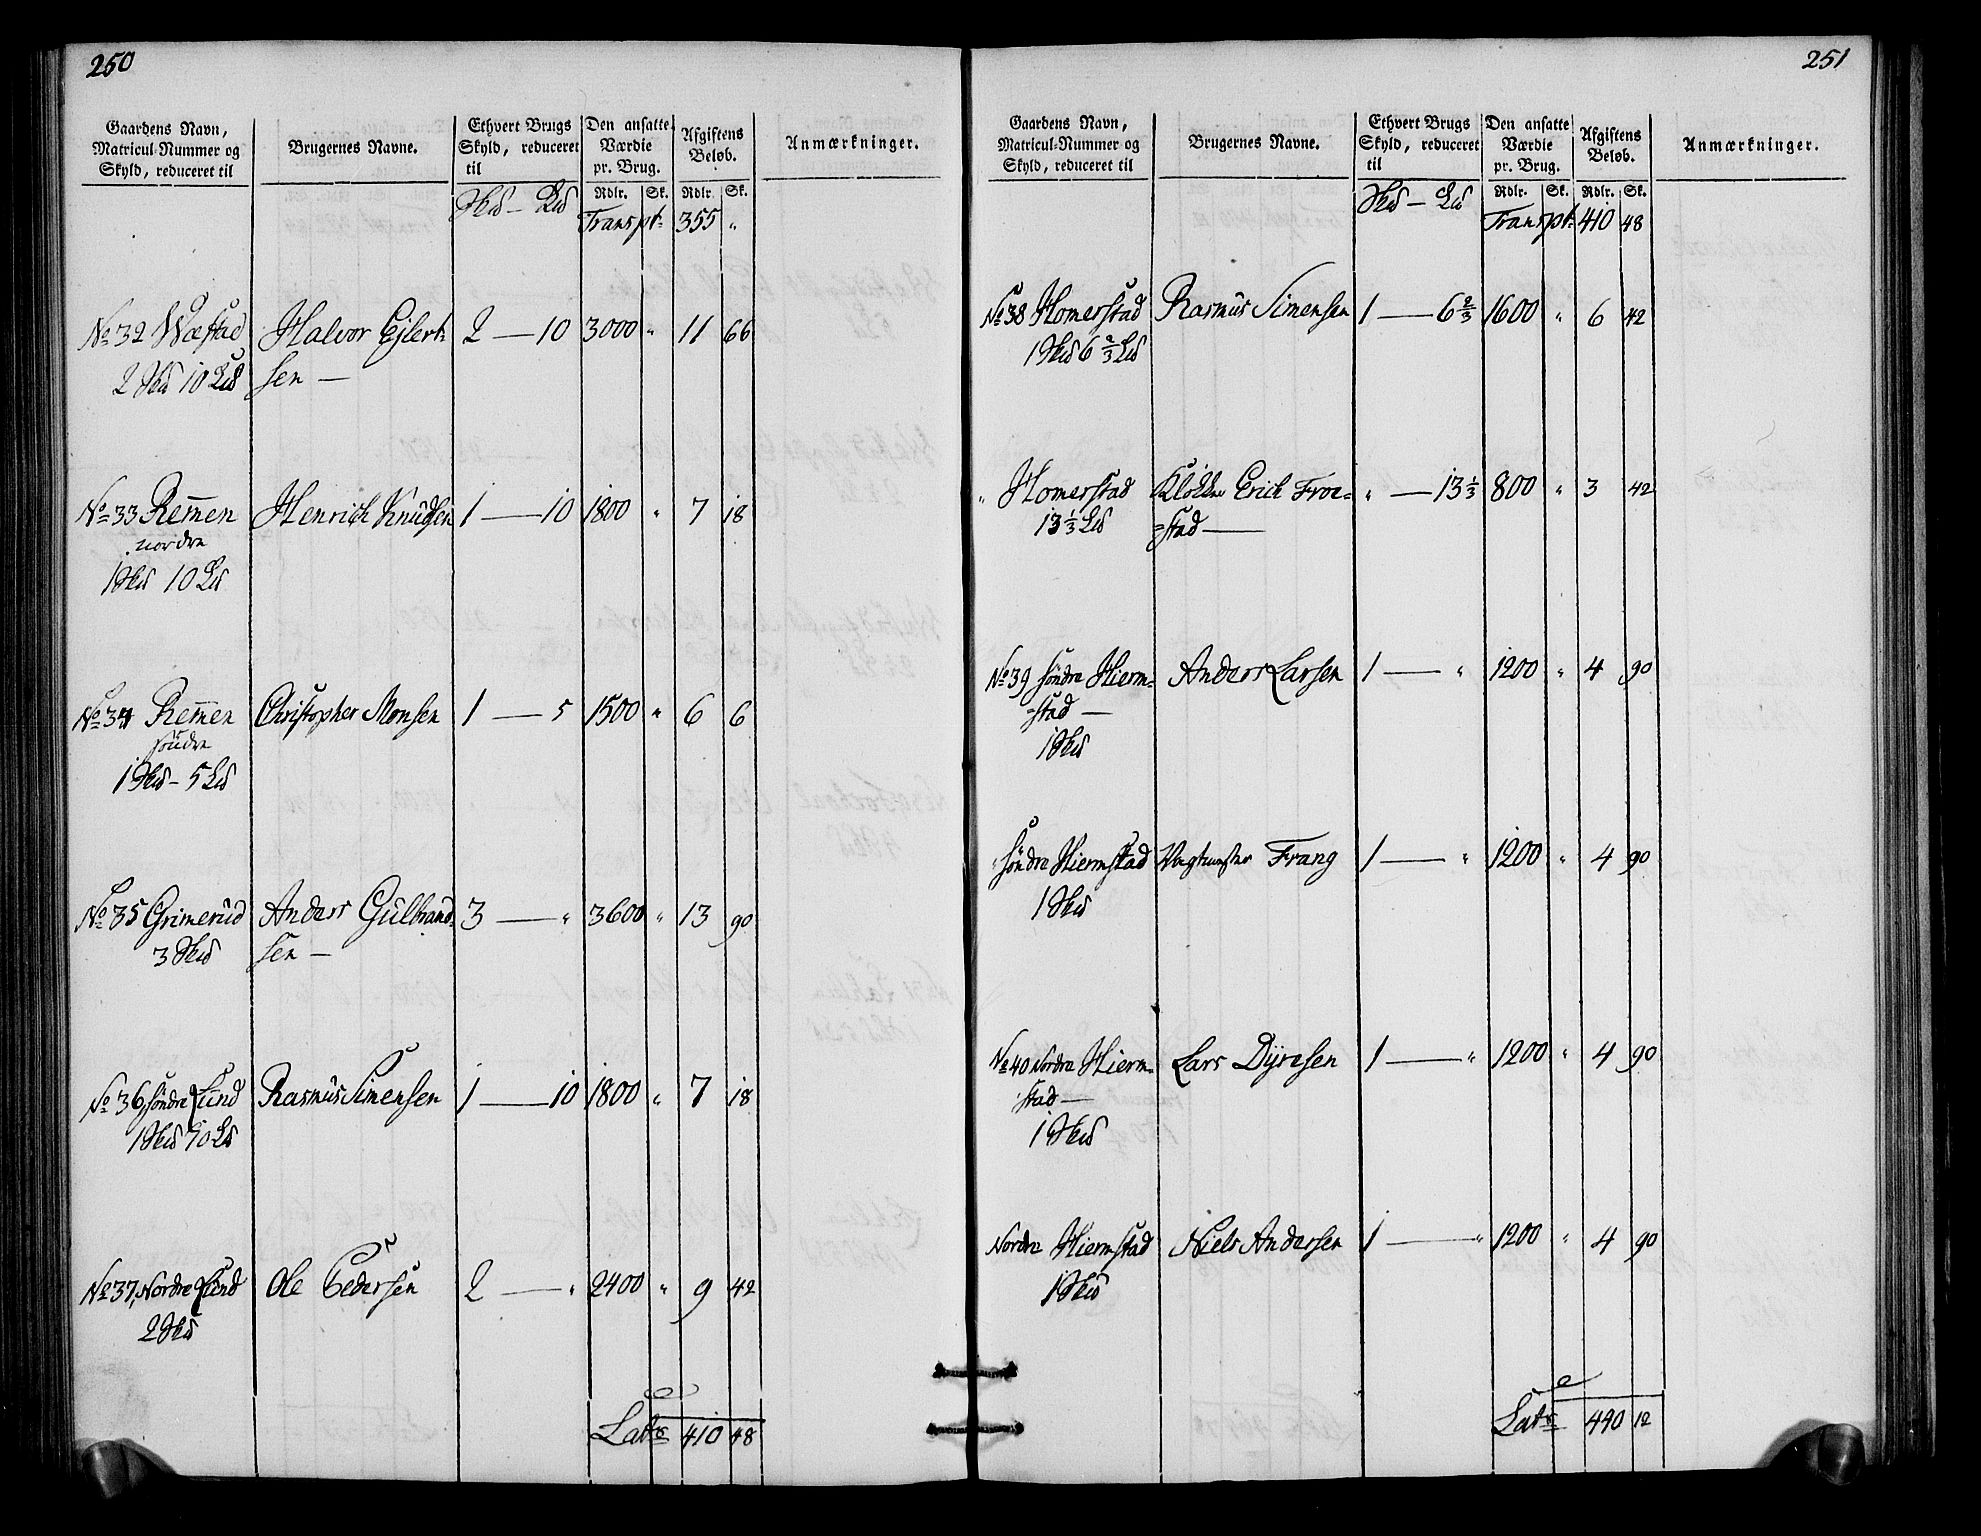 250
Gaardens Navn, Matricul-Nummer og Skyld, reduceret til | Brugernes Navne. | Ethvert Brugs Skyld, reduceret til | Den ansatte Værdie pr. Brug. | Afgiftens Beløb. | Anmærkninger.
Skd — Ld | Rdlr. Sk. | Rdlr. Sk.
Transpt. 355 "
No 32 Wæstad Halvor Ejlert- 2 — 10 3000 " 11 66
2 Skd 10 Ld sen —
No 33 Remmen Henrich Knudsen 1 — 10 1800 " 7 18
nordre
1 Skd 10 Ld
No 34 Remmen Christopher Monsen 1 — 5 1500 " 6 6
søndre
1 Skd - 5 Ld
No 35 Grimerud Anders Gulbrand- 3 — " 3600 " 13 90
3 Skd sen —
No 36, søndre Lund Rasmus Simensen 1 — 10 1800 " 7 18
1 Skd 10 Ld
No 37, Nordre Lund Ole Pedersen 2 — " 2400 " 9 42
2 Skd
Lats 410 48
251
Gaardens Navn, Matricul-Nummer og Skyld, reduceret til | Brugernes Navne. | Ethvert Brugs Skyld, reduceret til | Den ansatte Værdie pr. Brug. | Afgiftens Beløb. | Anmærkninger.
Skd — Ld | Rdlr. Sk. | Rdlr. Sk.
Transpt. 410 48
No 38 Homerstad Rasmus Simensen 1 — 6 2/3 1600 " 6 42
1 Skd 6 2/3 Ld
" Homerstad Klokker Erich Froe= " — 13 1/3 800 " 3 42
13 1/3 Ld =stad —
No 39 søndre Hierm= Anders Larsen 1 — " 1200 " 4 90
=stad —
1 Skd
" søndre Hiermstad Vagtmester Frang 1 — " 1200 " 4 90
1 Skd
No 40 Nordre Hierm= Lars Dyresen 1 — " 1200 " 4 90
stad —
1 Skd
Nordre Hiermstad Niels Andersen 1 — " 1200 " 4 90
1 Skd
Lats 440 12